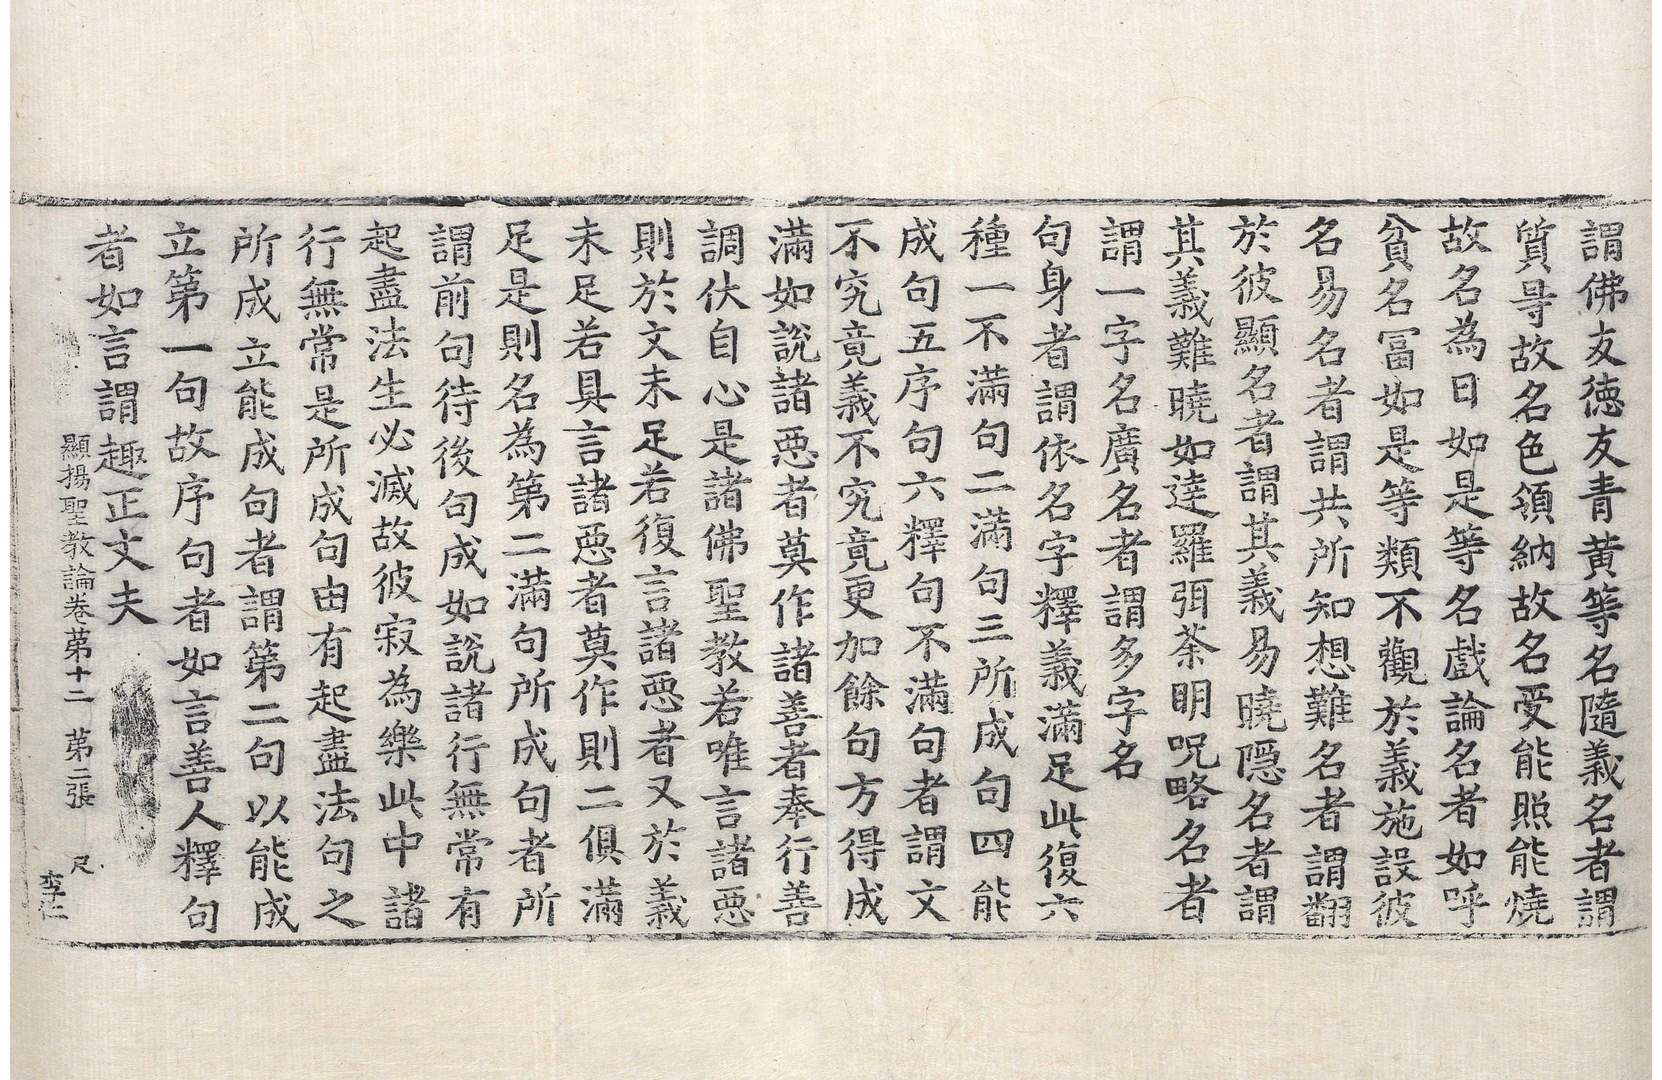 謂佛友德友青黄等名隨義名者謂
質㝵故名色領納故名受能照能燒
故名為日如是等名戲論名者如呼
貧名冨如是等類不觀於義施設彼
名易名者謂共所知想難名者謂翻
於彼顯名者謂其義易曉隱名者謂
其義難曉如達羅弭荼明呪略名者
謂一字名廣名者謂多字名
句身者謂依名字釋義滿足此復六
種一不滿句二滿句三所成句四能
成句五序句六釋句不滿句者謂文
不究竟義不究竟更加餘句方得成
滿如說諸惡者莫作諸善者奉行善
調伏自心是諸佛聖教若唯言諸惡
則於文未足若復言諸惡者又於義
未足若具言諸惡者莫作則二俱滿
足是則名為第二滿句所成句者所
謂前句待後句成如說諸行無常有
起盡法生必滅故彼寂為樂此中諸
行無常是所成句由有起盡法句之
所成立能成句者謂第二句以能成
立第一句故序句者如言善人釋句
者如言謂趣正丈夫
顯揚聖教論卷苐十二 苐二張 尺
李仁